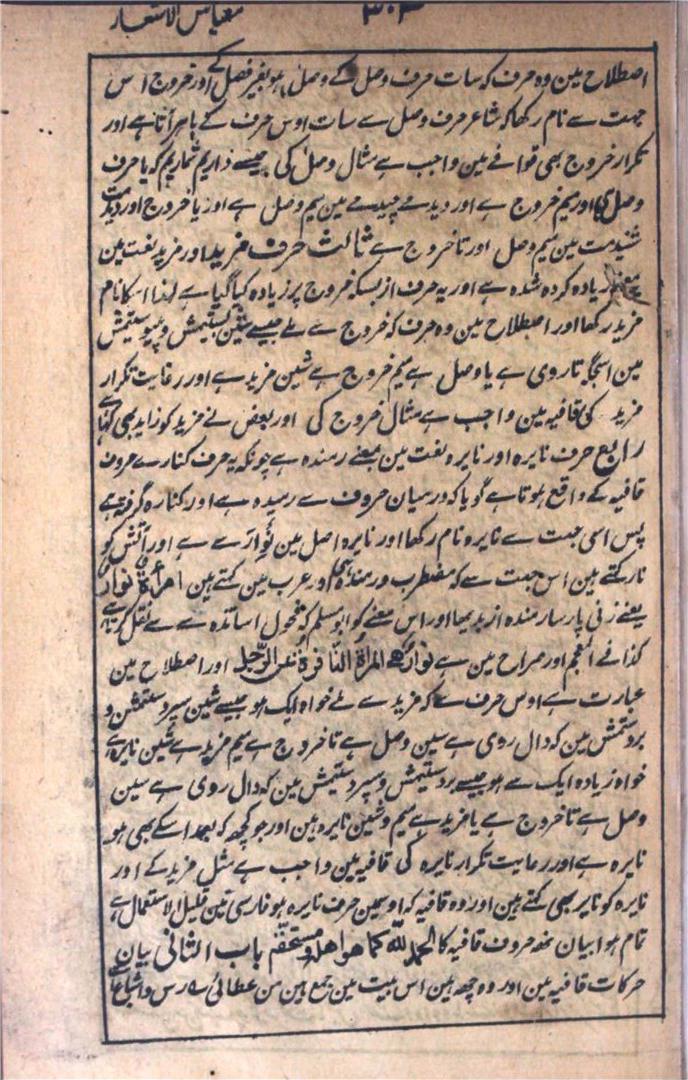 معیاس الاشعار ۳۰۳
اصطلاح مین وہ حرف کہ سات حرف وصل کے وصل ہو بغیر فصل کے اور خروج اس
جہت سے نام رکھا کہ شاعر حرف وصل سے سات اوس حرف کے باہر آتا ہے اور
تکرار خروج بھی قوافے مین واجب ہے مثال وصل کی جیسے داریم شماریم کہ یا حرف
وصل کا اور میم خروج ہے اور دیدے چیدے مین میم وصل ہے اور یا خروج اور دیدمت
شنیدمت مین میم وصل اور تا خروج ہے ثالث حرف مزید اور مزید لغت مین
بمعنے زیادہ کردہ شدہ ہے اور یہ حرف ازبسکہ خروج پر زیادہ کیا گیا ہے لہذا اسکا نام
مزید رکھا اور اصطلاح مین وہ حرف کہ خروج سے ملے جیسے شین بستیمش و پیوستیمش
مین اسجگہ تا روی ہے یا وصل ہے میم خروج ہے شین مزید ہے اور رعایت تکرار
مزید کی قافیہ مین واجب ہے مثال خروج کی اور بعض نے مزید کو زاید بھی کہا ہے
رابع حرف نایرہ اور نایرہ لغت مین بمعنے رمندہ ہے چونکہ یہ حرف کنارے حروف
قافیہ کے واقع ہوتا ہے گویا کہ درمیان حروف سے رمیدہ ہے اور کنارہ گرفتہ ہے
پس اسی جہت سے نایرہ نام رکھا اور نایرہ اصل مین نوار سے ہے اور آتش کو
نار کہتے ہین اس جہت سے کہ مضطرب و رمندہ ہے اور عرب مین کہتے ہین امرأۃ نوار
یعنے زنی پارسا رمندہ از بدیہا اور اس معنے کو ابو مسلم کہ فحول اساتذہ سے ہے نقل کرتا ہے
کذا فے المعجم اور صراح مین ہے نوار ھے المرأۃ النافرۃ عن الرجل اور اصطلاح مین
عبارت ہے اوس حرف سے کہ مزید سے ملے خواہ ایک ہو جیسے شین سپردستمش و
بردستمش مین کہ دال روی ہے سین وصل ہے تا خروج ہے میم مزید ہے شین نایرہ ہے
خواہ زیادہ ایک سے ہو جیسے بردستیمش و سپردستیمش مین کہ دال روی ہے سین
وصل ہے تا خروج ہے یا مزید ہے میم و شین نایرہ ہین اور جو کچھ کہ بعد اسکے بھی ہو
نایرہ ہے اور رعایت تکرار نایرہ کی قافیہ مین واجب ہے مثل مزید کے اور
نایرہ کو نایر بھی کہتے ہین اور وہ قافیہ کہ اوسمین حرف نایرہ ہو فارسی مین قلیل الاستعمال ہے
تمام ہوا بیان نہ حروف قافیہ کا الحمد للہ کما ھو اھلہ و مستحقہ باب الثانی بیان
حرکات قافیہ مین اور وہ چھ ہین اس بیت مین جمع ہین من عطائی رس و اشباع